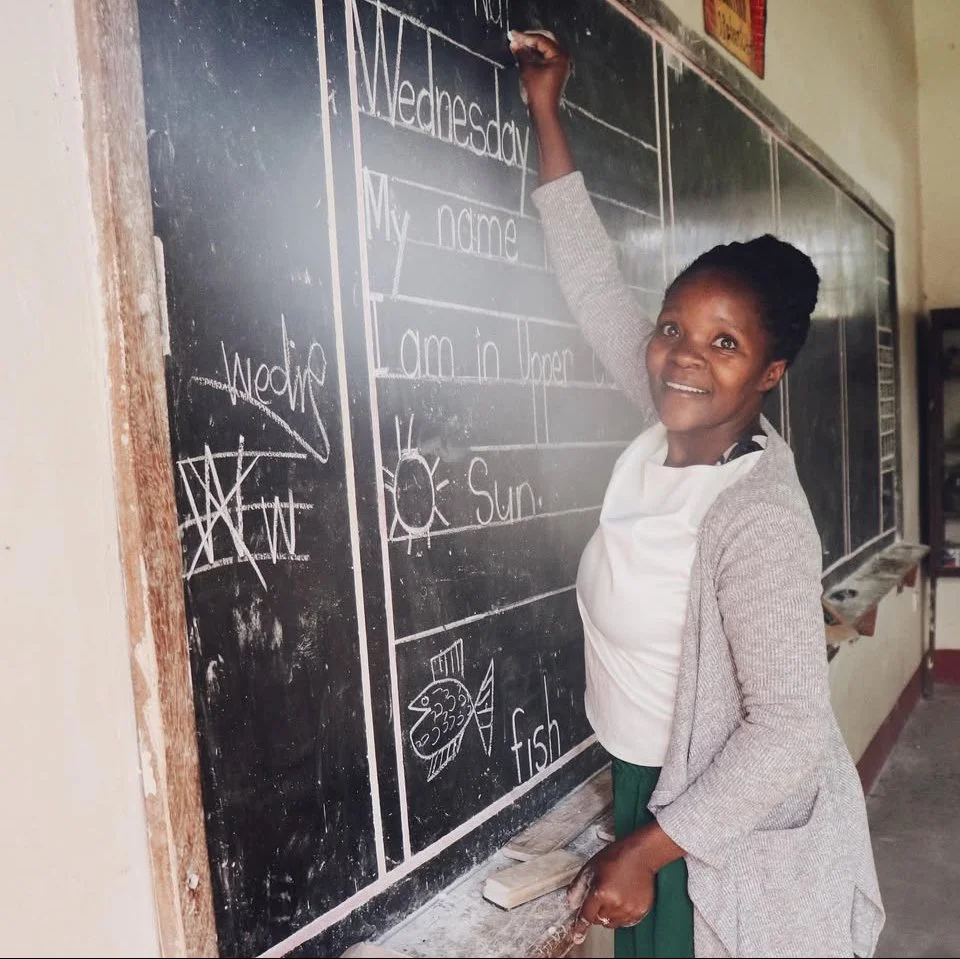 Wednesday
My name
I am in Upper
Sun.
fish
W